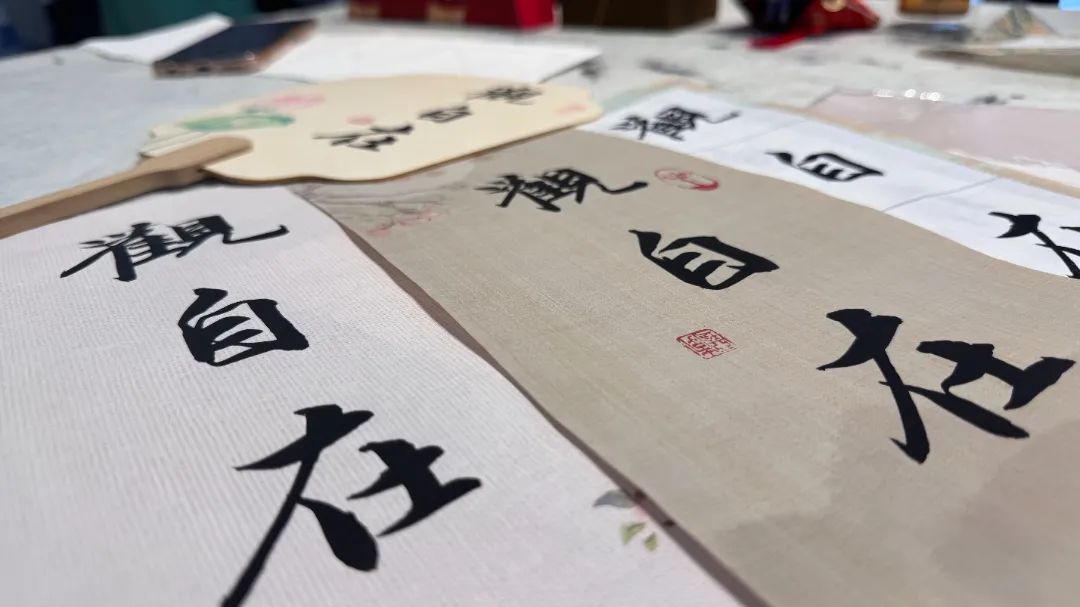 觀自在
觀自在
觀自在
觀自在